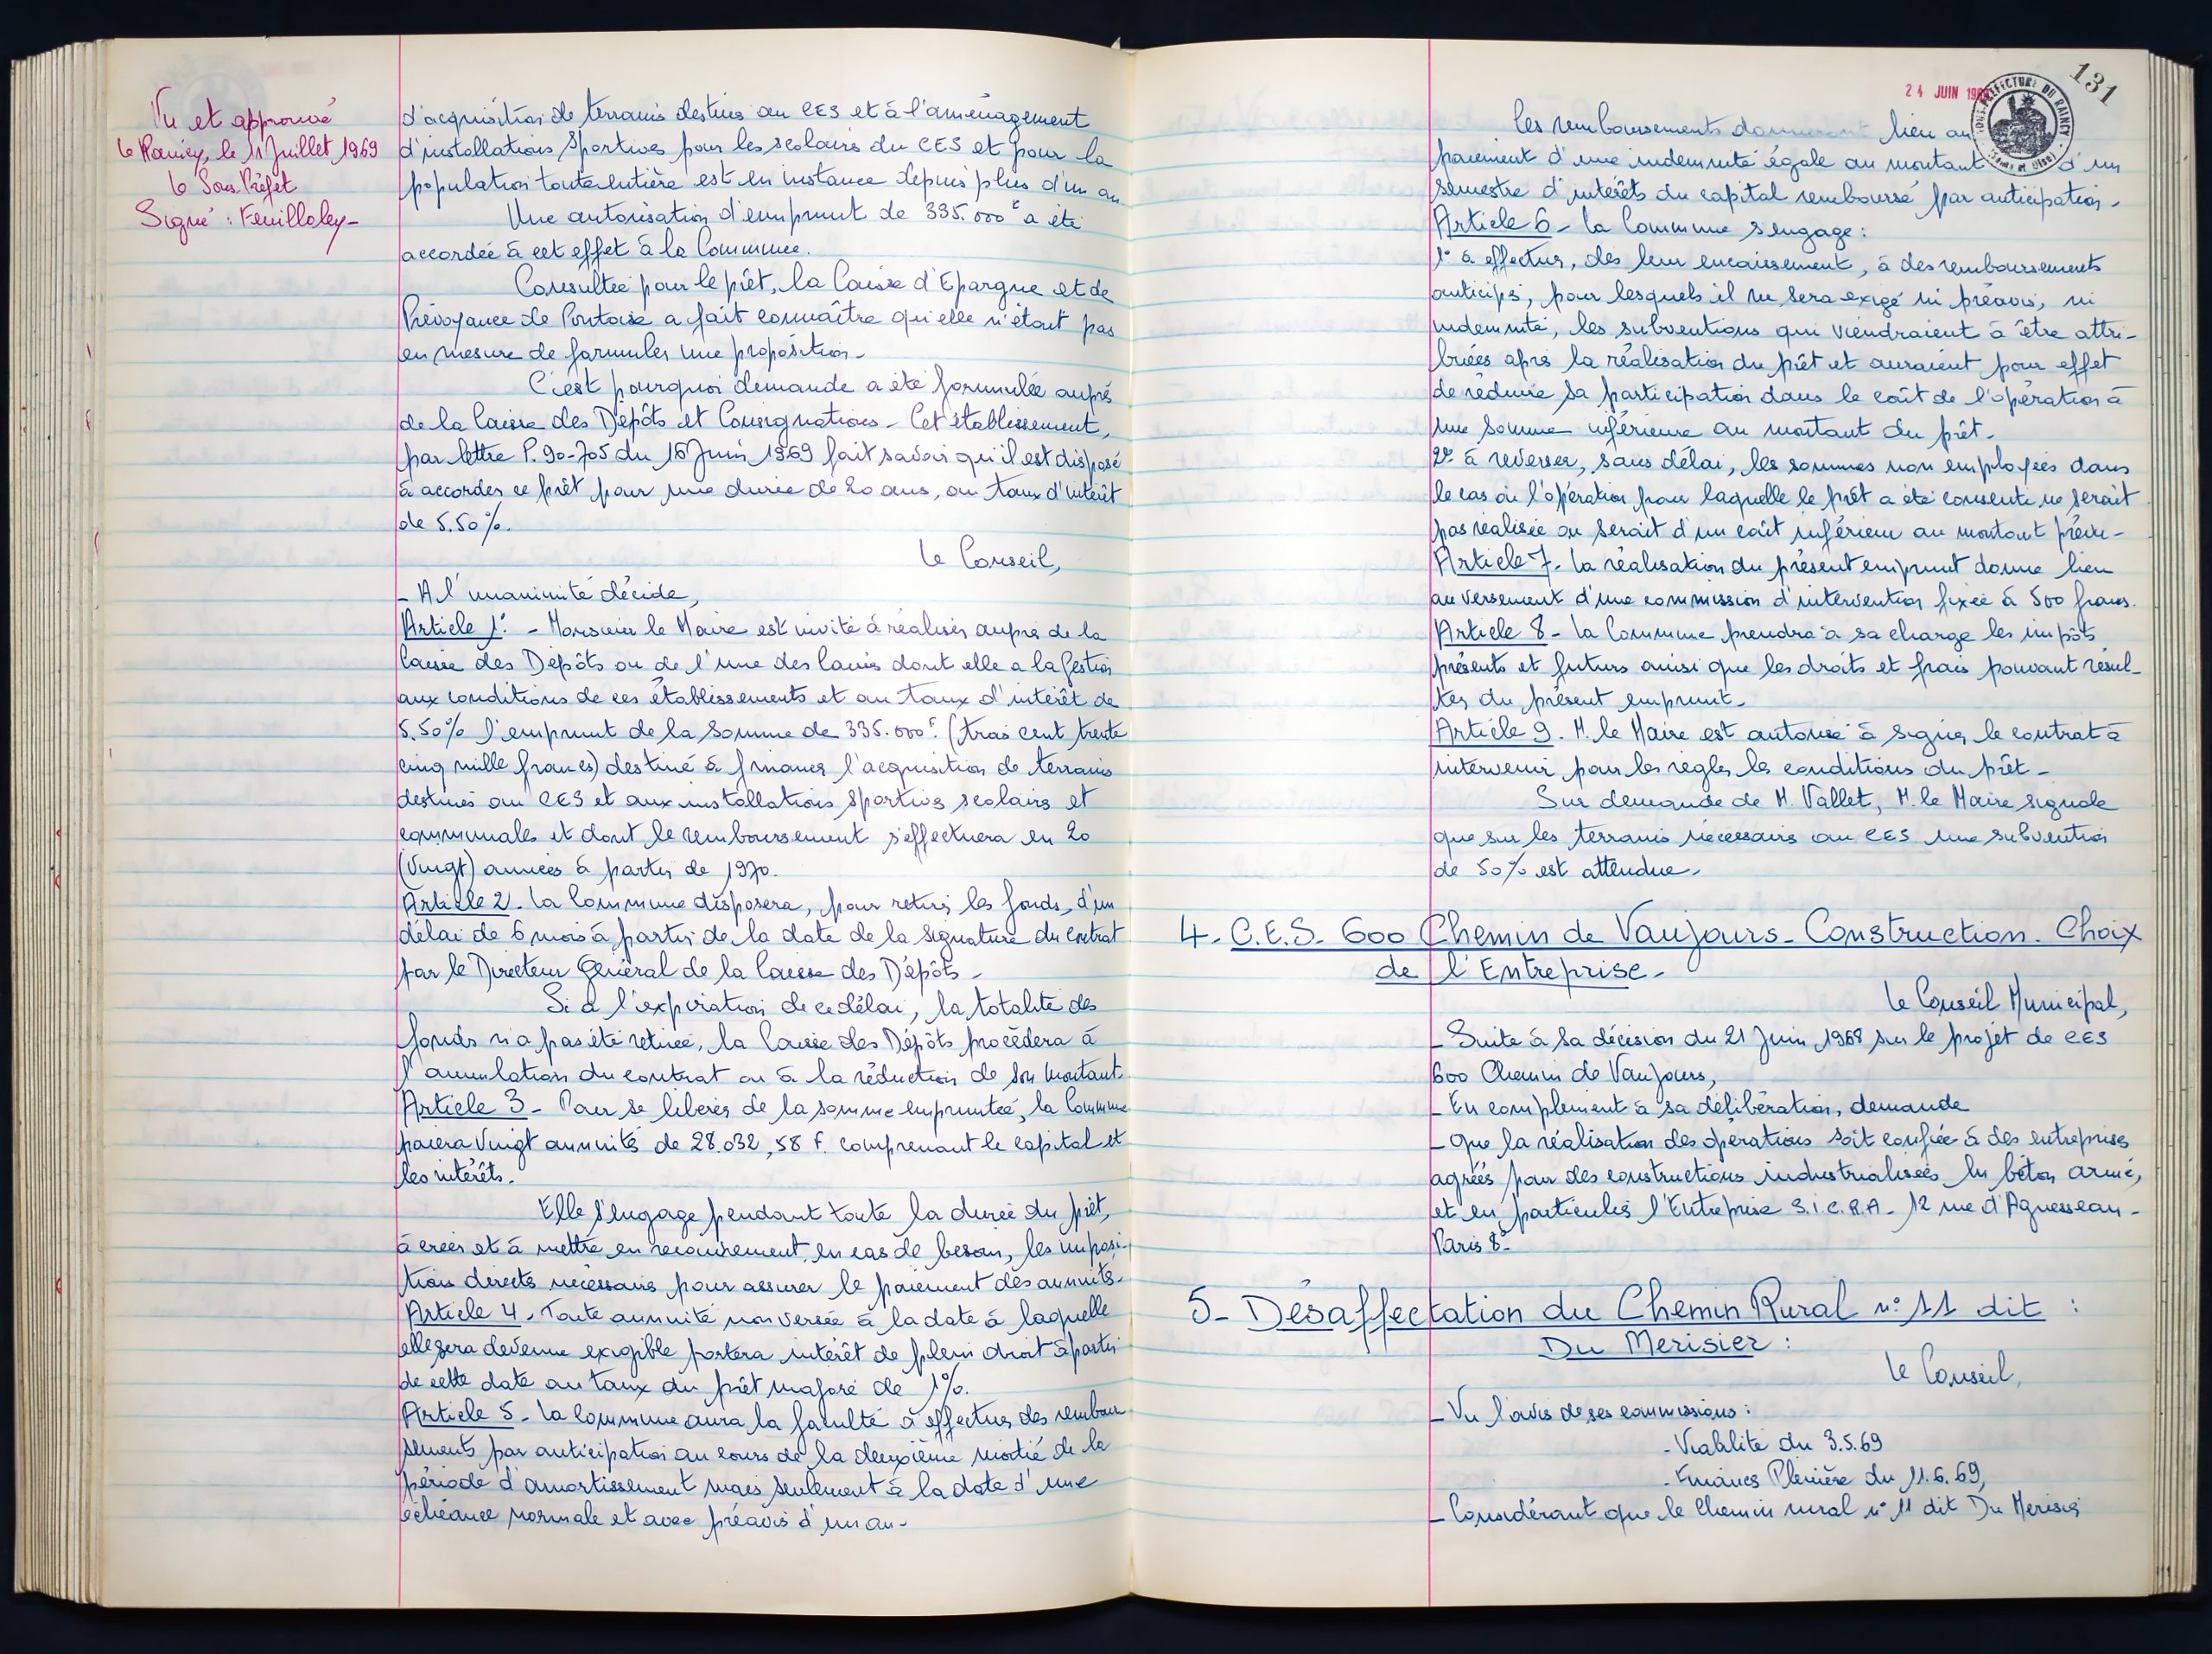 Vu et approuvé
Le Raincy, le 11 Juillet 1969
Le Sous-Préfet
Signé : Feuilloley-
d'acquisition de terrains destinés au CES et à l'aménagement
d'installations Sportives pour les scolaires du CES et pour la
population toute entière est en instance depuis plus d'un an.
Une autorisation d'emprunt de 335.000 F a été
accordée à cet effet à la Commune.
Consultée pour le prêt, la Caisse d'Epargne et de
Prévoyance de Pontoise a fait connaître qu'elle n'était pas
en mesure de formuler une proposition-
C'est pourquoi demande a été formulée auprès
de la Caisse des Dépôts et Consignations- Cet établissement,
par lettre P.90-705 du 16 Juin 1969 fait savoir qu'il est disposé
à accorder ce prêt pour une durée de 20 ans, au taux d'intérêt
de 5.50%.
Le Conseil,
- A l'unanimité décide,
Article 1°. - Monsieur le Maire est invité à réaliser auprès de la
Caisse des Dépôts ou de l'une des Caisses dont elle a la gestion
aux conditions de ces établissements et au taux d'intérêt de
5.50% l'emprunt de la Somme de 335.000 F (trois cent trente
cinq mille francs) destiné à financer l'acquisition de terrains
destinés au CES et aux installations sportives scolaires et
communales et dont le remboursement s'effectuera en 20
(vingt) années à partir de 1970.
Article 2- La Commune disposera, pour retirer les fonds, d'un
délai de 6 mois à partir de la date de la signature du contrat
par le Directeur Général de la Caisse des Dépôts-
Si à l'expiration de ce délai, la totalité des
fonds n'a pas été retirée, la Caisse des Dépôts procèdera à
l'annulation du contrat ou à la réduction de son montant-
Article 3- Pour se libérer de la somme empruntée, la Commune
paiera vingt annuités de 28.032,58 F. comprenant le capital et
les intérêts.
Elle s'engage pendant toute la durée du prêt,
à créer et à mettre en recouvrement, en cas de besoin, les imposi-
tions directes nécessaires pour assurer le paiement des annuités-
Article 4- Toute annuité non versée à la date à laquelle
elle sera devenue exigible portera intérêt de plein droit à partir
de cette date au taux du prêt majoré de 1%.
Article 5- La Commune aura la faculté à effectuer des rembour-
sements par anticipation au cours de la deuxième moitié de la
période d'amortissement mais seulement à la date d'une
échéance normale et avec préavis d'un an-
24 JUIN
SOUS-PREFECTURE DU RAINCY
131
Les remboursements donneront lieu au
paiement d'une indemnité égale au montant d'un
semestre d'intérêts du capital remboursé par anticipation-
Article 6- La Commune s'engage:
1° à effectuer, dès leur encaissement, à des remboursements
anticipés, pour lesquels il ne sera exigé ni préavis, ni
indemnité, les subventions qui viendraient à être attri-
buées après la réalisation du prêt et auraient pour effet
de réduire sa participation dans le coût de l'opération à
une somme inférieure au montant du prêt-
2° à reverser, sans délai, les sommes non employées dans
le cas où l'opération pour laquelle le prêt a été consenti ne serait
pas réalisée ou serait d'un coût inférieur au montant prévu-
Article 7- La réalisation du présent emprunt donne lieu
au versement d'une commission d'intervention fixée à 500 francs.
Article 8- La Commune prendra à sa charge les impôts
présents et futurs ainsi que les droits et frais pouvant résul-
ter du présent emprunt-
Article 9. M. le Maire est autorisé à signer le contrat à
intervenir pour les régler les conditions du prêt-
Sur demande de M. Vallet, M. le Maire signale
que sur les terrains nécessaires au CES une subvention
de 50% est attendue-
4- C.E.S- 600 Chemin de Vaujours- Construction. Choix
de l'Entreprise-
Le Conseil Municipal,
- Suite à sa décision du 21 Juin 1968 sur le projet de CES
600 Chemin de Vaujours,
- En complément à sa délibération, demande
- que la réalisation des opérations soit confiée à des entreprises
agréés pour des constructions industrialisées en béton armé,
et en particulier l'Entreprise S.I.C.R.A- 12 rue d'Aguesseau-
Paris 8°-
5- Désaffectation du Chemin Rural n° 11 dit :
Du Merisier :
Le Conseil,
- Vu l'avis de ses commissions :
- Viabilité du 3.5.69
- Finances Plénière du 11.6.69,
- Considérant que le Chemin rural n° 11 dit Du Merisier